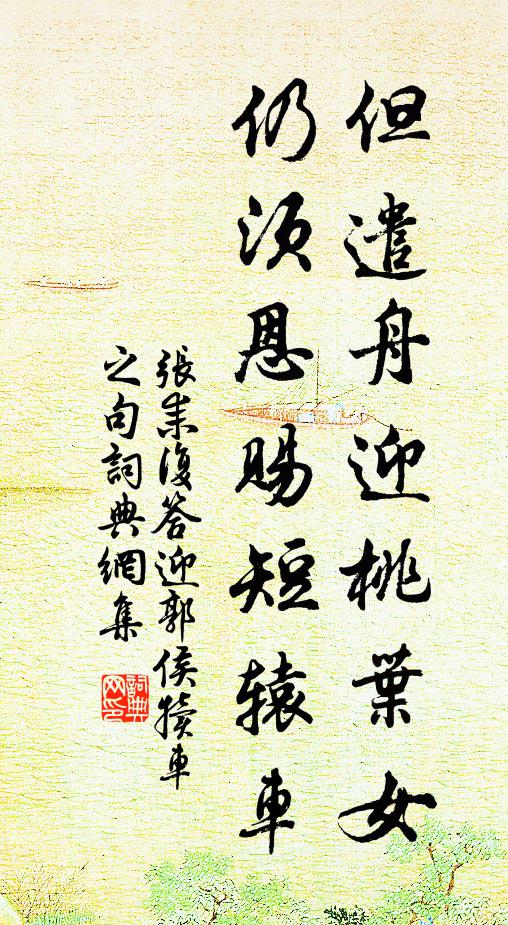 但遣舟迎桃葉女
仍須恩賜短辕車
張耒復答迎郭侯犢車
之句詞典網集
詞典
网印